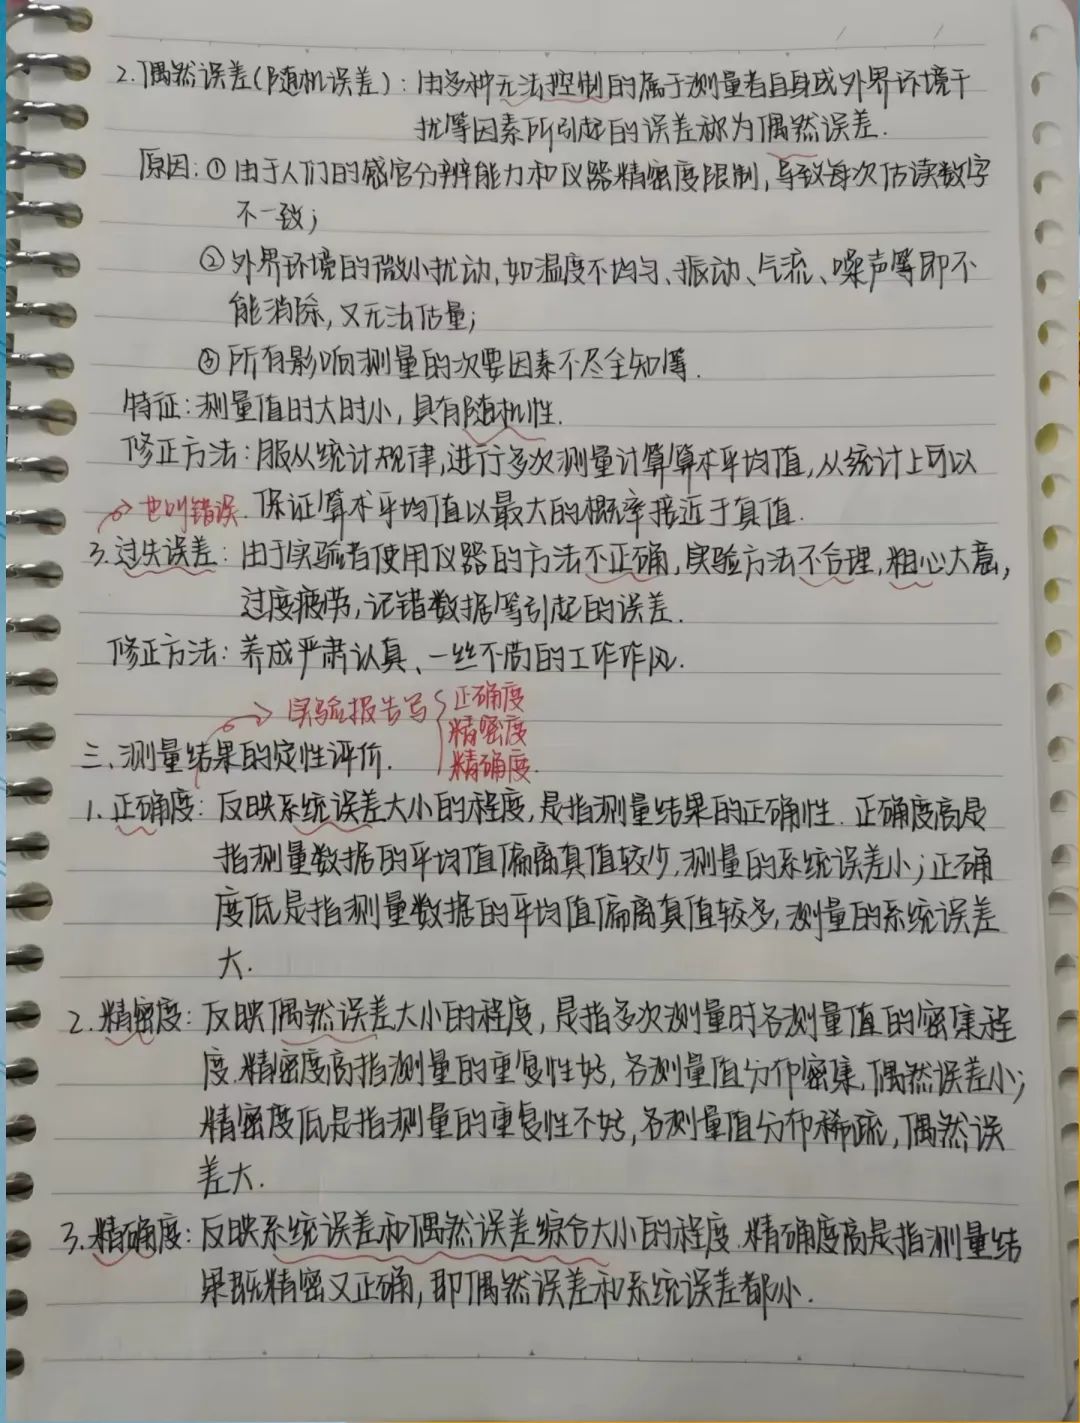 2.偶然误差(随机误差):由多种无法控制的属于测量者自身或外界环境干
扰等因素所引起的误差称为偶然误差.
原因:①由于人们的感官分辨能力和仪器精密度限制,导致每次估读数字
不一致;
②外界环境的微小扰动,如温度不均匀、振动、气流、噪声等即不
能消除,又无法估量;
③所有影响测量的次要因素不尽全知等.
特征:测量值时大时小,具有随机性.
修正方法:服从统计规律,进行多次测量计算算术平均值,从统计上可以
→也叫错误.保证算术平均值以最大的概率接近于真值.
3.过失误差:由于实验者使用仪器的方法不正确,实验方法不合理,粗心大意,
过度疲劳,记错数据等引起的误差.
修正方法:养成严肃认真、一丝不苟的工作作风.
→实验报告写{正确度
精密度
精确度.
三、测量结果的定性评价.
1.正确度:反映系统误差大小的程度,是指测量结果的正确性.正确度高是
指测量数据的平均值偏离真值较少,测量的系统误差小;正确
度低是指测量数据的平均值偏离真值较多,测量的系统误差
大.
2.精密度:反映偶然误差大小的程度,是指多次测量时各测量值的密集程
度.精密度高指测量的重复性好,各测量值分布密集,偶然误差小;
精密度低是指测量的重复性不好,各测量值分布稀疏,偶然误
差大.
3.精确度:反映系统误差和偶然误差综合大小的程度.精确度高是指测量结
果既精密又正确,即偶然误差和系统误差都小.